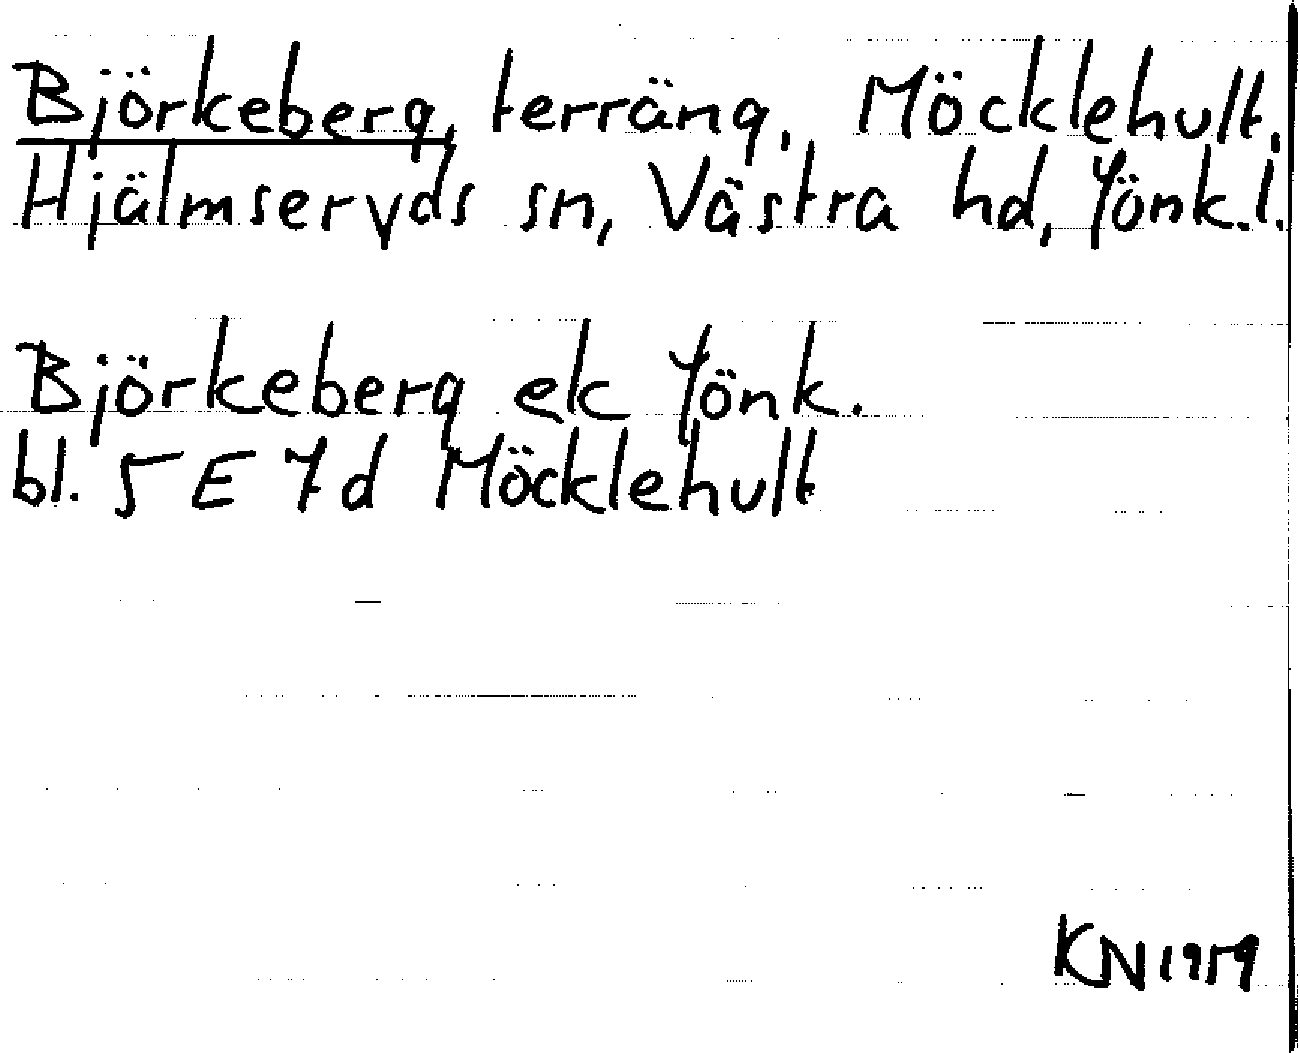 Björkeberg, terräng, Möcklehult,
Hjälmseryds sn, Västra hd, Jönk.l.
Björkeberg ek Jönk.
bl. 5 E 7d Möcklehult
KN 1959